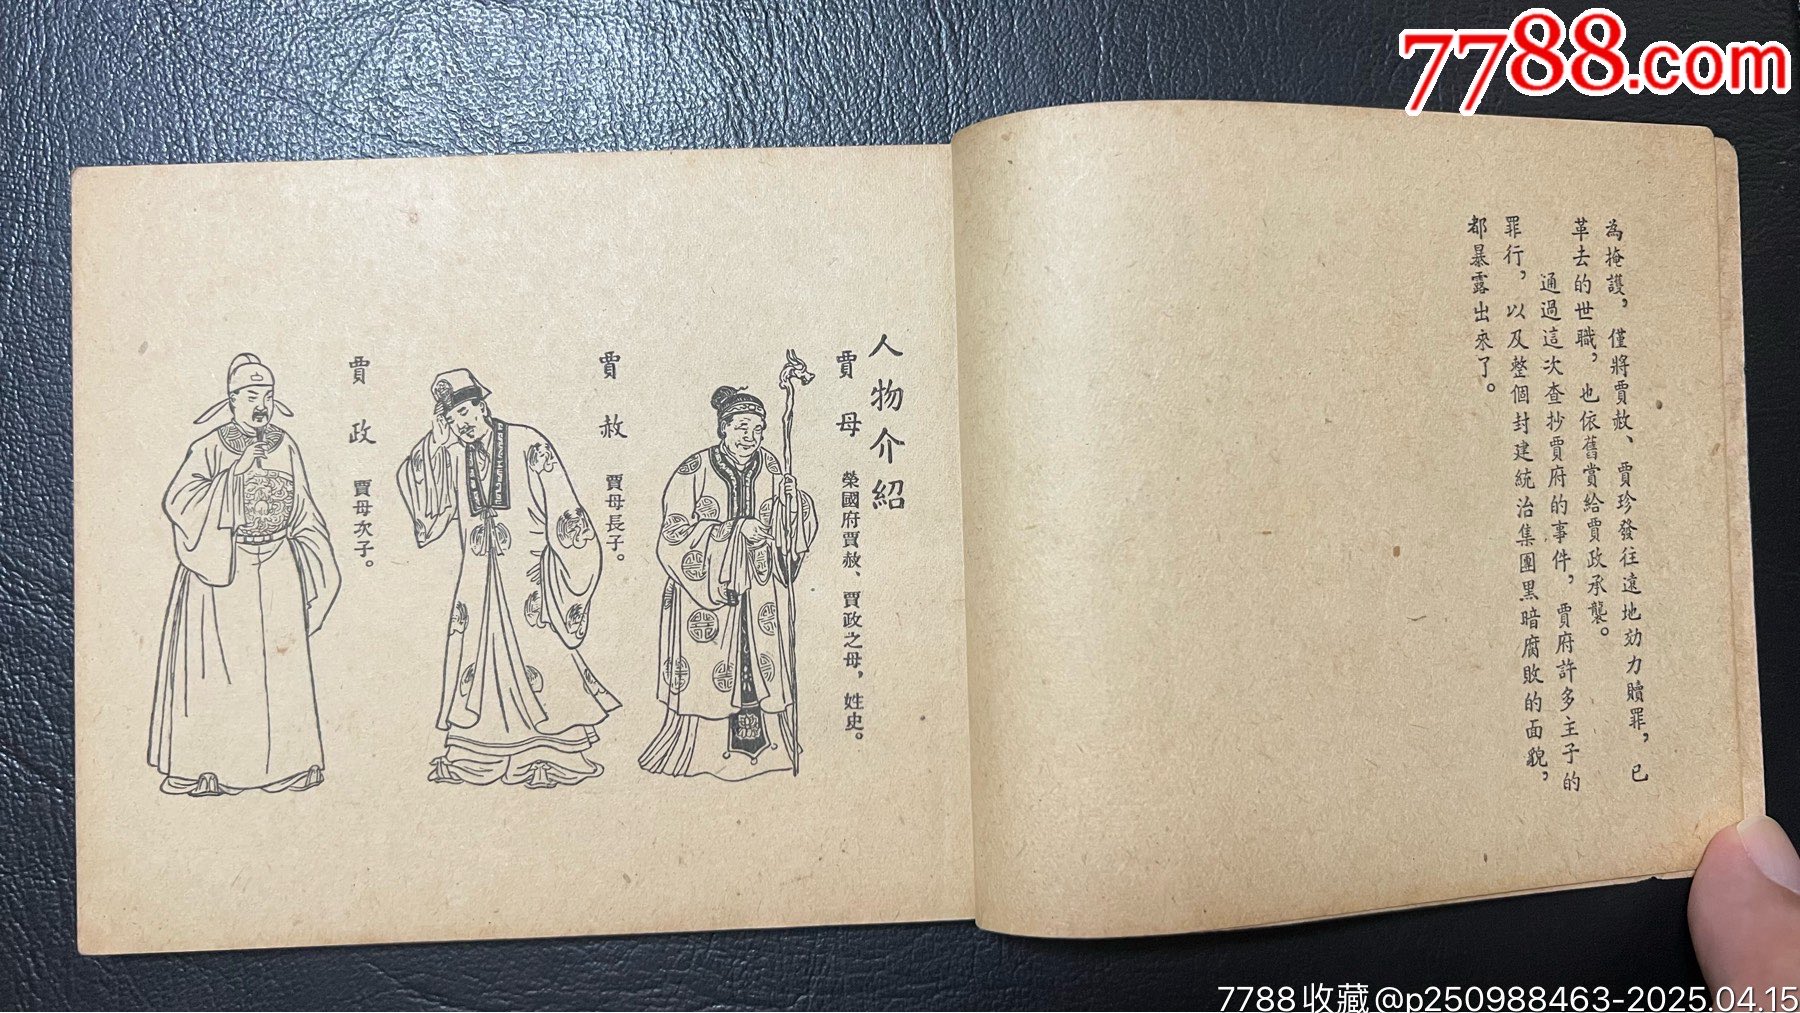 7788.com
為掩護，僅將賈赦、賈珍發往遠地効力贖罪，已
革去的世職，也依舊賞給賈政承襲。
通過這次查抄賈府的事件，賈府許多主子的
罪行，以及整個封建統治集團黑暗腐敗的面貌，
都暴露出來了。
人物介紹
賈母 榮國府賈赦、賈政之母，姓史。
賈赦 賈母長子。
賈政 賈母次子。
7788收藏@p250988463-2025.04.15